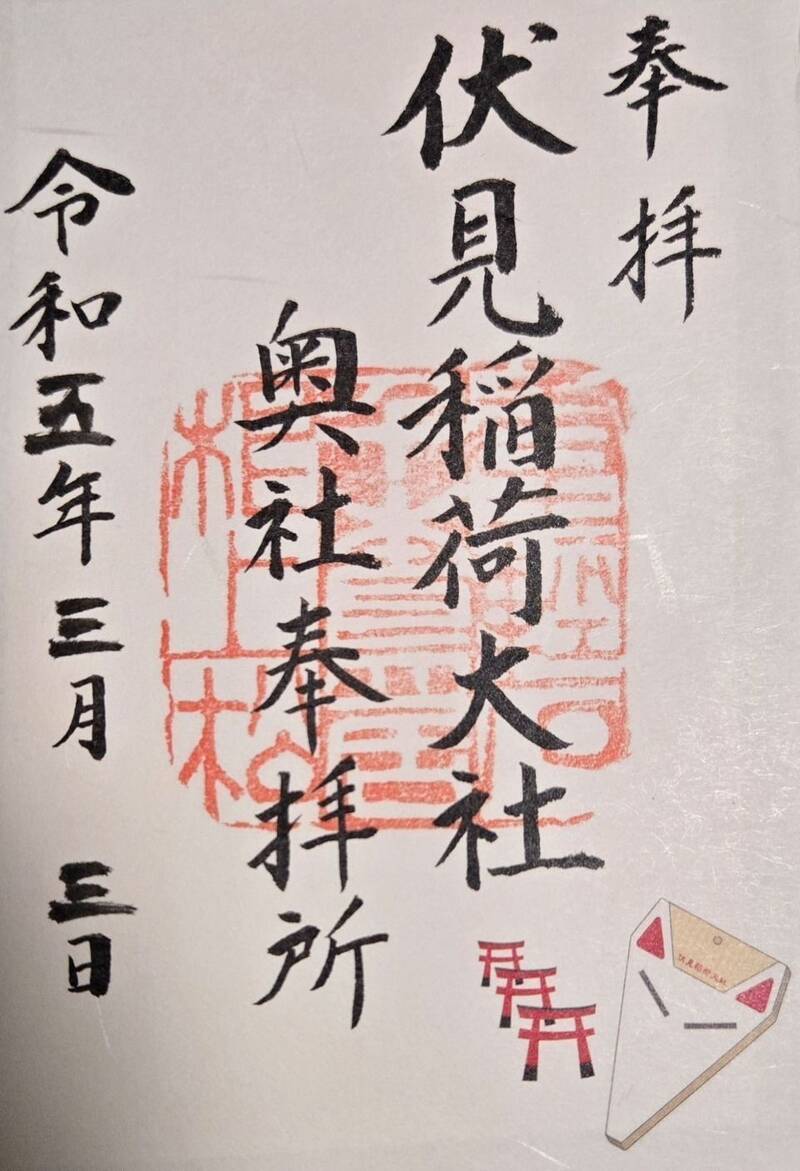 奉拝
伏見稲荷大社
奥社奉拝所
令和五年三月三日
伏見稲荷大社